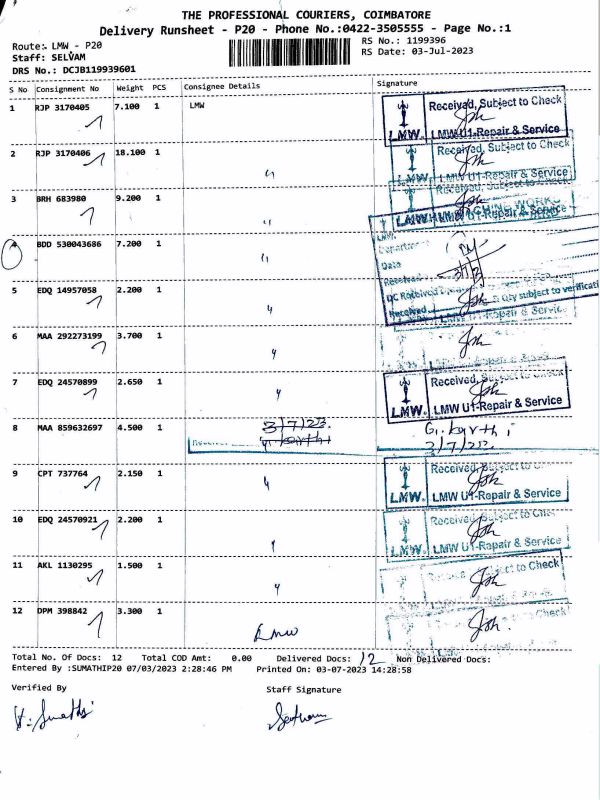 THE PROFESSIONAL COURIERS, COIMBATORE
Delivery Runsheet - P20 - Phone No.:0422-3505555 - Page No.:1
Route:- LMW - P20
RS No.: 1199396
Staff: SELVAM
RS Date: 03-Jul-2023
DRS No.: DCJB119939601
S No Consignment No Weight PCS Consignee Details Signature
1 RJP 3170405 7.100 1 LMW
Received, Subject to Check
LMW. LMW U1-Repair & Service
2 RJP 3170406 18.100 1 "
Received, Subject to Check
LMW. LMW U1-Repair & Service
3 BRH 683980 9.200 1 "
Received, Subject to Check
LMW U1-Repair & Service
4 BDD 530043686 7.200 1 "
LMW.
Department
Date
Received
3/7/23
5 EDQ 14957058 2.200 1 "
Received
LMW U1-Repair & Service
6 MAA 292273199 3.700 1 "
7 EDQ 24570899 2.650 1 "
Received, Subject to Check
LMW. LMW U1-Repair & Service
8 MAA 859632697 4.500 1
3/7/23.
G. karthi
G. karthi
3/7/23.
9 CPT 737764 2.150 1 "
Received, Subject to
LMW. LMW U1-Repair & Service
10 EDQ 24570921 2.200 1 "
Received, Subject to Check
LMW. LMW U1-Repair & Service
11 AKL 1130295 1.500 1 "
Subject to Check
12 DPM 398842 3.300 1 LMW
Total No. Of Docs: 12 Total COD Amt: 0.00 Delivered Docs: 12 Non Delivered Docs:
Entered By :SUMATHIP20 07/03/2023 2:28:46 PM Printed On: 03-07-2023 14:28:58
Verified By Staff Signature